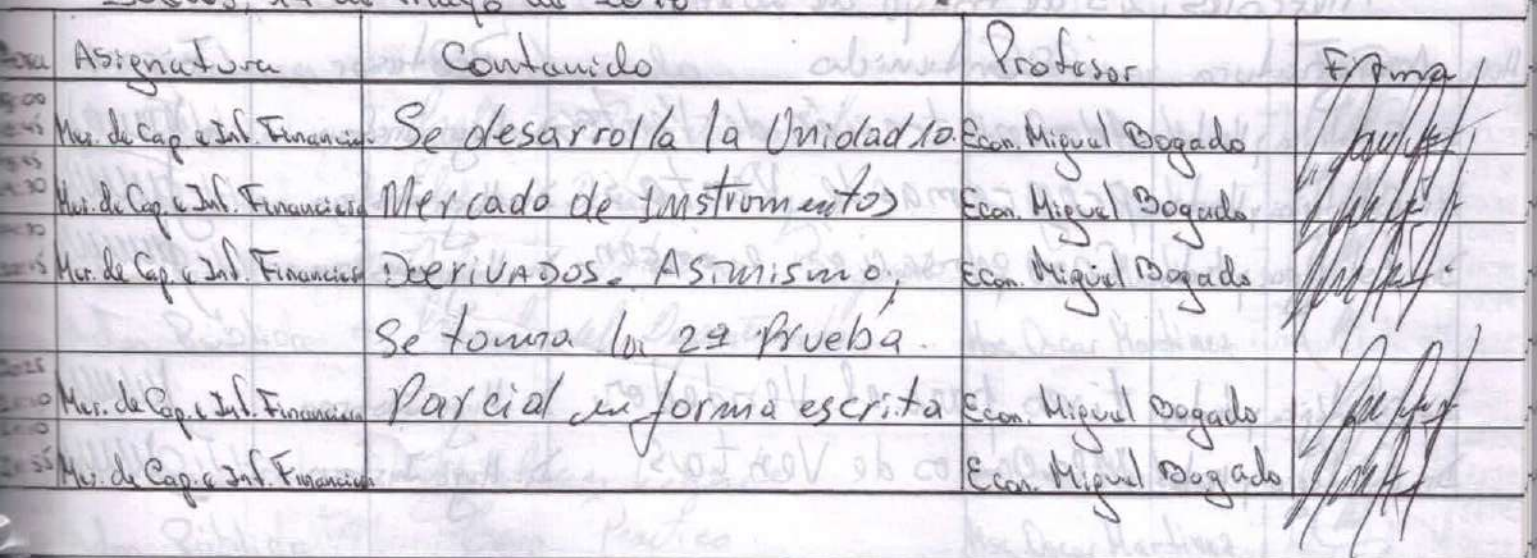 de mayo de
Hora Asignatura Contenido Profesor Firma
Mer. de Cap. e Inf. Financiera Se desarrolla la Unidad 10. Econ. Miguel Bogado
Mer. de Cap. e Inf. Financiera Mercado de Instrumentos Econ. Miguel Bogado
Mer. de Cap. e Inf. Financiera DERIVADOS. Asimismo, Econ. Miguel Bogado
se toma la 2ª Prueba
Mer. de Cap. e Inf. Financiera Parcial en forma escrita Econ. Miguel Bogado
Mer. de Cap. e Inf. Financiera Econ. Miguel Bogado